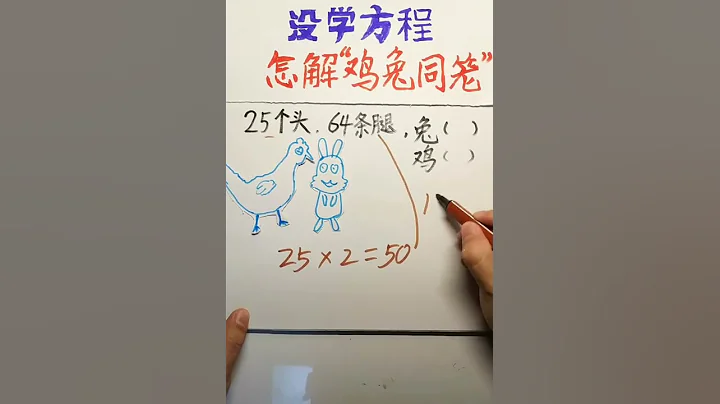 没学方程
怎解“鸡兔同笼”
25个头.64条腿,兔( )
鸡( )
25×2=50
1